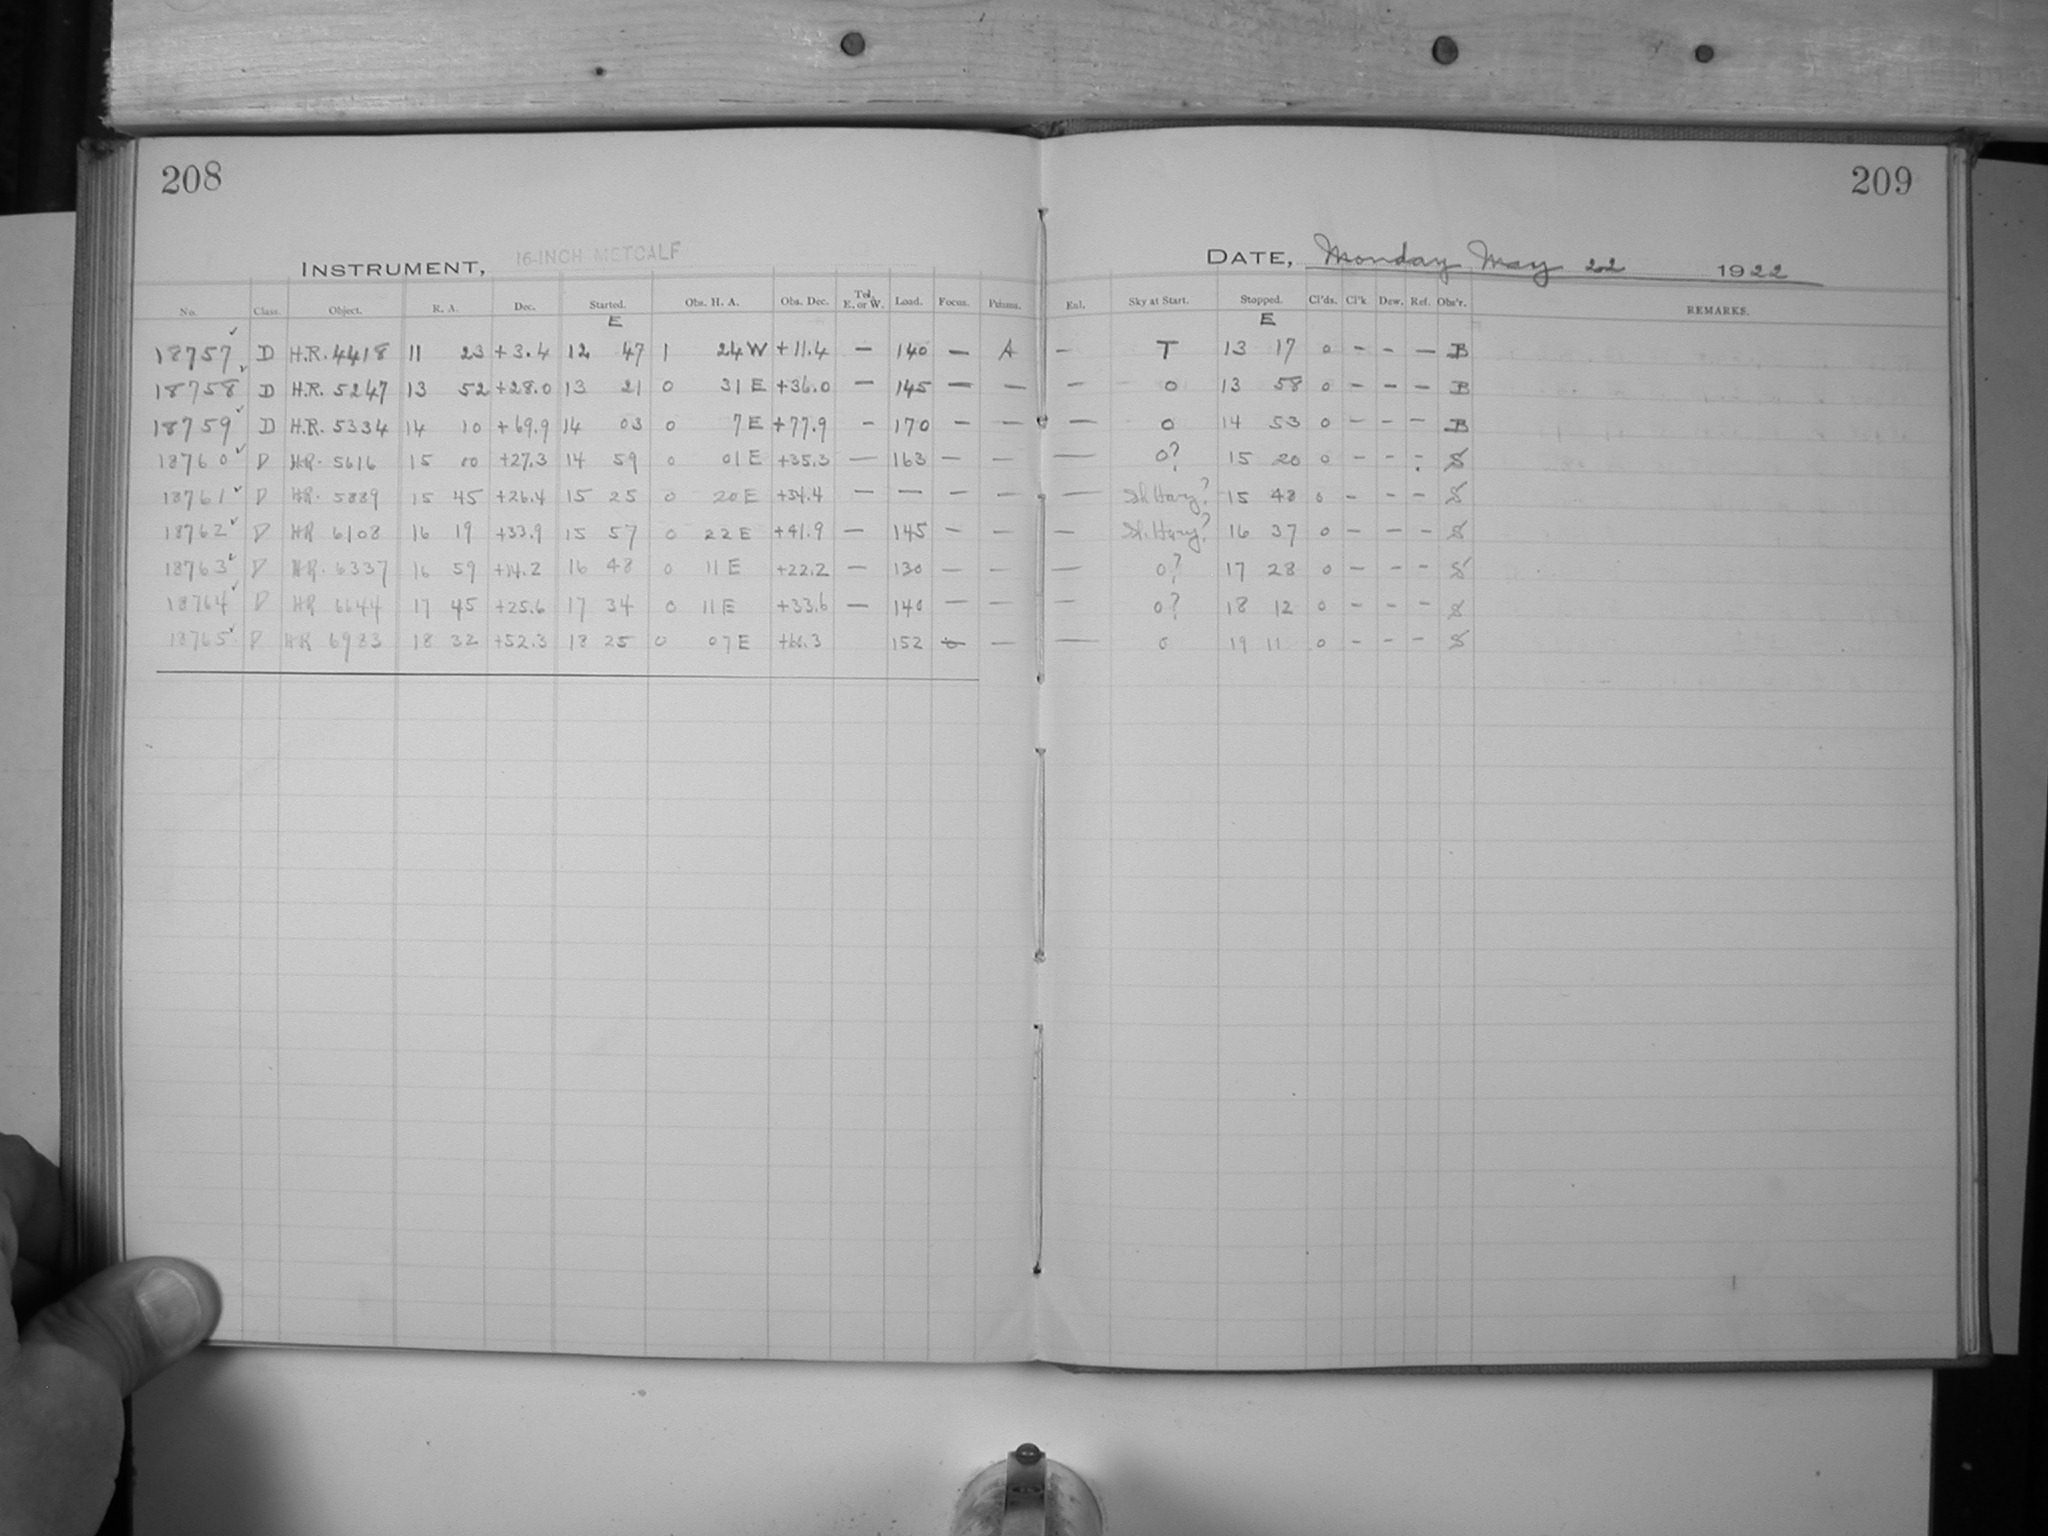 208
209
INSTRUMENT, 16-INCH METCALF
DATE, Monday May 22 1922
No. Class. Object. R. A. Dec. Started. Obs. H. A. Obs. Dec. Tel. E. or W. Load. Focus. Prisms. Enl. Sky at Start. Stopped. Cl'ds. Cl'k. Dew. Ref. Obs'r. REMARKS.
E E
18757 ✓ D H.R. 4418 11 23 +3.4 12 47 1 24 W +11.4 — 140 — A — T 13 17 0 - - — B
18758 ✓ D H.R. 5247 13 52 +28.0 13 21 0 31 E +36.0 — 145 — — — 0 13 58 0 - - - B
18759 ✓ D H.R. 5334 14 10 +69.9 14 03 0 7 E +77.9 - 170 - — — 0 14 53 0 - - - B
18760 ✓ D H.R. 5616 15 00 +27.3 14 59 0 01 E +35.3 — 163 — — — 0? 15 20 0 - - - S
18761 ✓ D H.R. 5889 15 45 +26.4 15 25 0 20 E +34.4 — — — — — Sl. Hazy? 15 48 0 - - - S
18762 ✓ D HR 6108 16 19 +33.9 15 57 0 22 E +41.9 — 145 — — — Sl. Hazy? 16 37 0 - - - S
18763 ✓ D H.R. 6337 16 59 +14.2 16 48 0 11 E +22.2 — 130 — — — 0? 17 28 0 - - - S
18764 ✓ D HR 6644 17 45 +25.6 17 34 0 11 E +33.6 — 140 — — — 0? 18 12 0 - - - S
18765 ✓ D HR 6983 18 32 +52.3 18 25 0 07 E 152 — — 0 19 11 0 - - - S